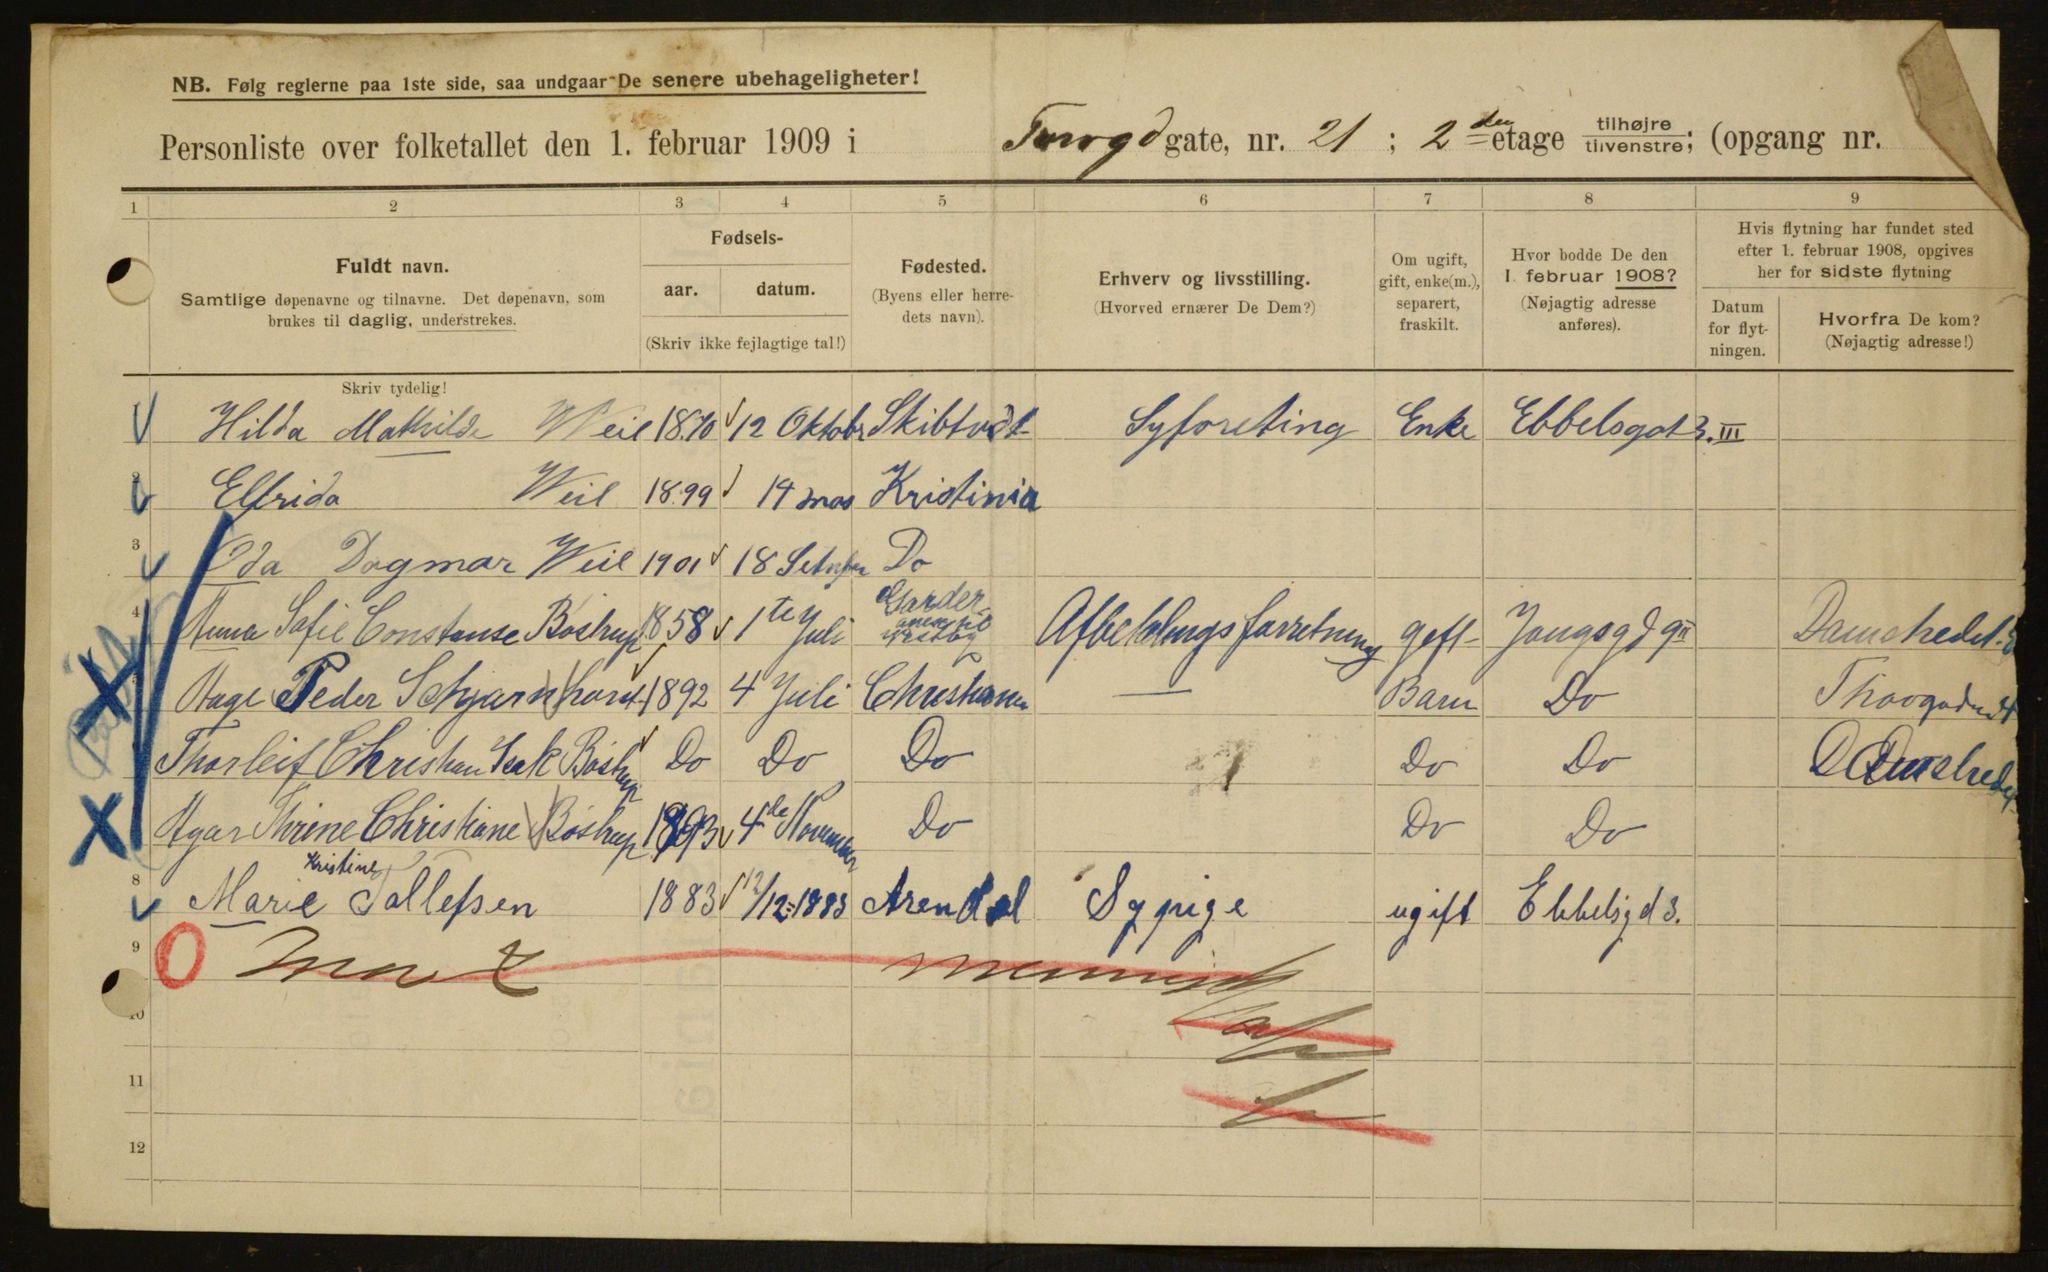 NB. Følg reglerne paa 1ste side, saa undgaar De senere ubehageligheter!
Personliste over folketallet den 1. februar 1909 i Torvgd gate, nr. 21 ; 2 den etage tilhøjre tilvenstre; (opgang nr.
1 2 3 4 5 6 7 8 9
Fuldt navn.
Samtlige døpenavne og tilnavne. Det døpenavn, som
brukes til daglig, understrekes.
Fødsels-
aar. datum.
(Skriv ikke fejlagtige tal!)
Fødested.
(Byens eller herre-
dets navn).
Erhverv og livsstilling.
(Hvorved ernærer De Dem?)
Om ugift,
gift, enke(m.),
separert,
fraskilt.
Hvor bodde De den
1. februar 1908?
(Nøjagtig adresse
anføres).
Hvis flytning har fundet sted
efter 1. februar 1908, opgives
her for sidste flytning
Datum
for flyt-
ningen.
Hvorfra De kom?
(Nøjagtig adresse!)
Skriv tydelig!
Hilda Mathilde Weil 1870 12 Oktobr Skibtvdt Syforeting Enke Ebbelsgat 3. III
2 Elfrida Weil 1899 14 mas Kristinia
3 Oda Dagmar Weil 1901 18 Do
4 Anna Sofie Constanse Bostrup 1858 1te Juli Afbetalingsforretning gift
Aage Peder 1892 4 Juli Christiania — Barn Do
Thorleif Christian Isak Bostrup Do Do Do Do Do
Agar Thrine Christiane Bostrup 1893 4de November Do Do Do
8 Marie Kristine Tallefsen 1883 12/12=1883 Arendal Sypige ugift Ebbelsgd 3.
9
10
11
12